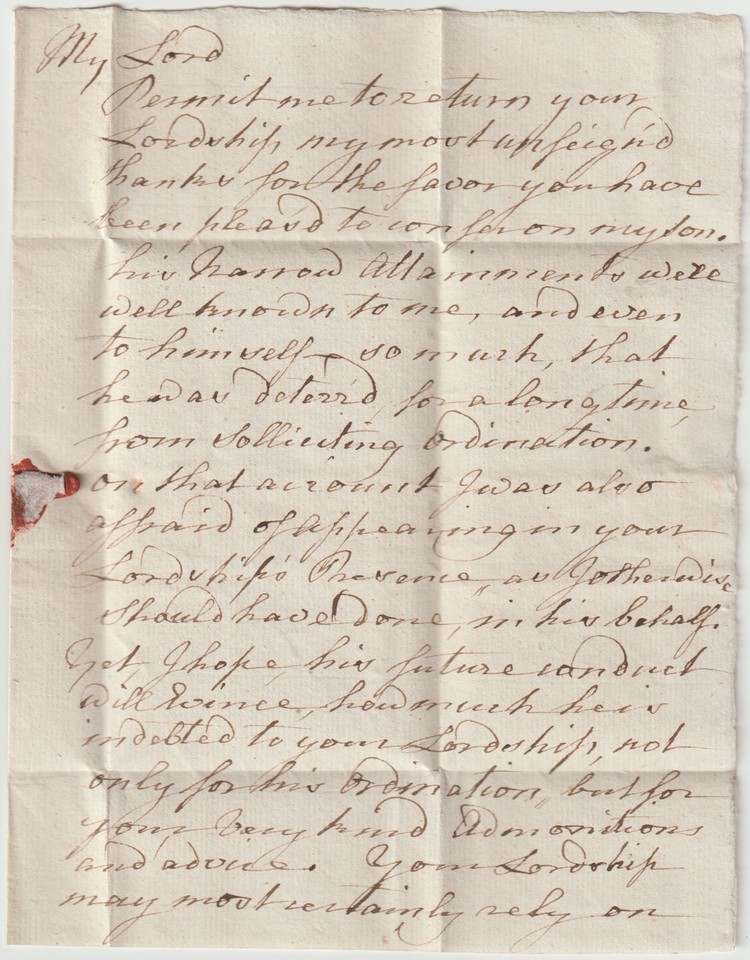 My Lord
Permit me to return your
Lordship my most unfeign'd
thanks for the favor you have
been pleas'd to confer on my son.
his Narrow Attainments were
well known to me, and even
to himself – so much, that
he was deterr'd, for a long time,
from Solliciting Ordination.
on that account I was also
affraid of appearing in your
Lordship's Presence, as I otherwise
should have done, in his behalf.
Yet, I hope, his future conduct
will Evince, how much he is
indebted to your Lordship, not
only for his Ordination, but for
your Very kind Admonitions
and advice. Your Lordship
may most certainly rely on